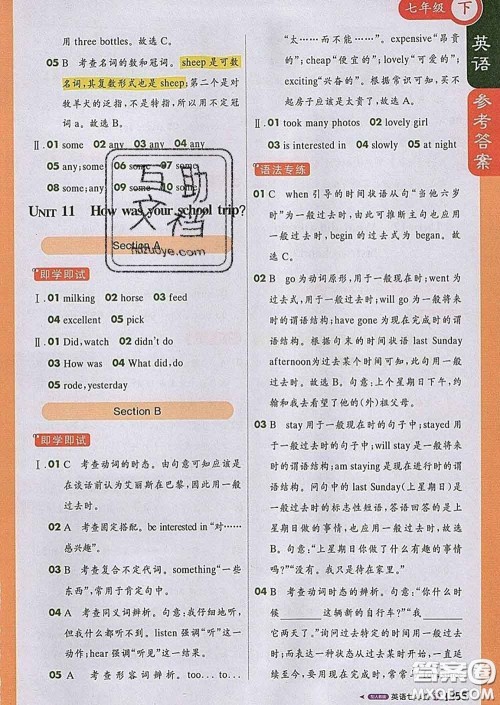 七年级 下
英语
参考答案
用 three bottles。故选 C。
05 B 考查名词的数和冠词。sheep 是可数
名词，其复数形式也是 sheep；第二个是对
数羊犬的泛指，不是特指，所以用不定冠
词 a。故选 B。
Ⅱ. 01 some 02 any 03 any 04 any
05 any 06 some 07 some 08 some
09 some 10 some
UNIT 11 How was your school trip?
Section A
即学即试
Ⅰ. 01 milking 02 horse 03 feed
04 excellent 05 pick
Ⅱ. 01 Did, watch 02 didn't do
03 How was 04 What did, do
05 rode, yesterday
Section B
即学即试
Ⅰ. 01 C 考查动词的时态。由句意可知应该是
在谈话前认为艾丽斯在巴黎，所以用一般
过去时。
02 A 考查固定搭配。be interested in "对……
感兴趣"。
03 B 考查复合不定代词。something "一些
东西"，常用于肯定句中。
04 A 考查同义词辨析。句意：我仔细地听，
但我什么都没听到。listen 强调"听"这一
动作；hear 强调"听见"这一结果。
05 A 考查形容词辨析。too... to...
"太……而不能……"。expensive "昂贵
的"；cheap "便宜的"；lovely "可爱的"；
exciting "兴奋的"。根据常识可知，买不
起房子应该是太贵了，故选 A。
Ⅱ. 01 took many photos 02 lovely girl
03 is interested in 04 slowly 05 all in all
语法专练
01 C when 引导的时间状语从句"当他六岁
时"为一般过去时，可推断主句也应为一
般过去时，begin 的过去式为 began。故
选 C。
02 B go 为动词原形，用于一般现在时；went 为
过去式，用于一般过去时；will go 为一般将来
时的谓语结构；have gone 为现在完成时的谓
语结构。根据句末的时间状语 last Sunday
afternoon 为过去某个时间可知，此句为一般
过去时。句意：上个星期日下午，格林一家开
车去看望了他们的(外)祖父母。
03 B stay 用于一般现在时的句子中；stayed 用
于一般过去时的句子中；will stay 是一般将
来时的谓语结构；am staying 是现在进行时
的谓语结构。问句中的 last Sunday (上星期
日)是一般过去时的标志性短语，答语回答的
是上星期日做的事情，也应用一般过去时，故
选 B。句意："上星期日你做了什么有趣的事
情吗？""没有，我只是待在家里。"
04 B 考查动词时态。句意："你什么时候
____这辆新的自行车？""我____
它两天了。"由询问过去特定时间要用一般过
去时；强调过去某一时间发生的事情对现在